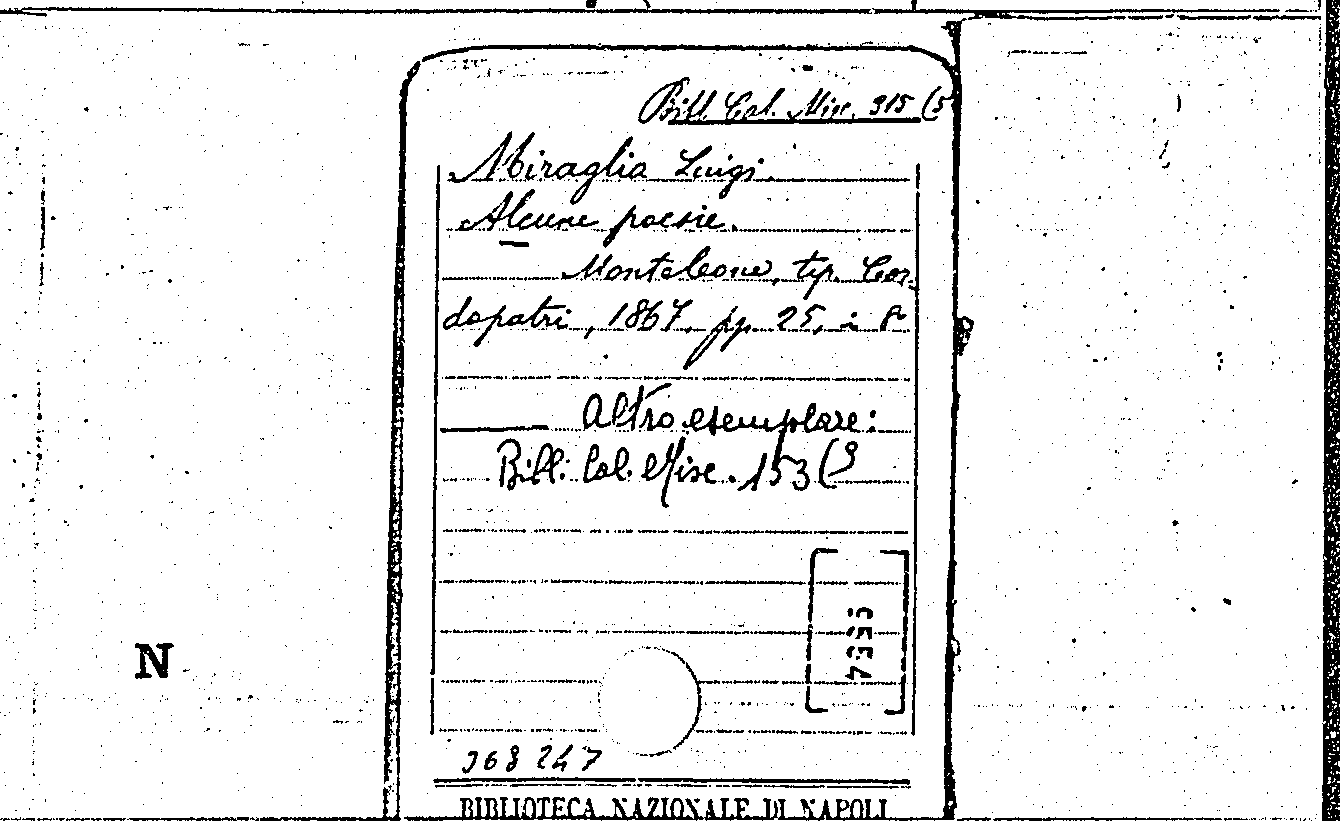 Bibl. Cal. Misc. 315 (5
Miraglia Luigi.
Alcune poesie.
Monteleone, tip. Cor-
dopatri, 1867, pp. 25, in 8º
Altro esemplare:
Bibl. Cal. Misc. 153 (9
N
368 247
BIBLIOTECA NAZIONALE DI NAPOLI